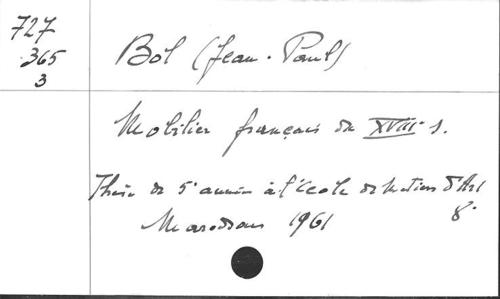 727
365
3
Bol (Jean-Paul)
Mobilier français du XVIIIe s.
Thèse de 5e année à l'école de Métiers d'Art
8°
Maredsous 1961